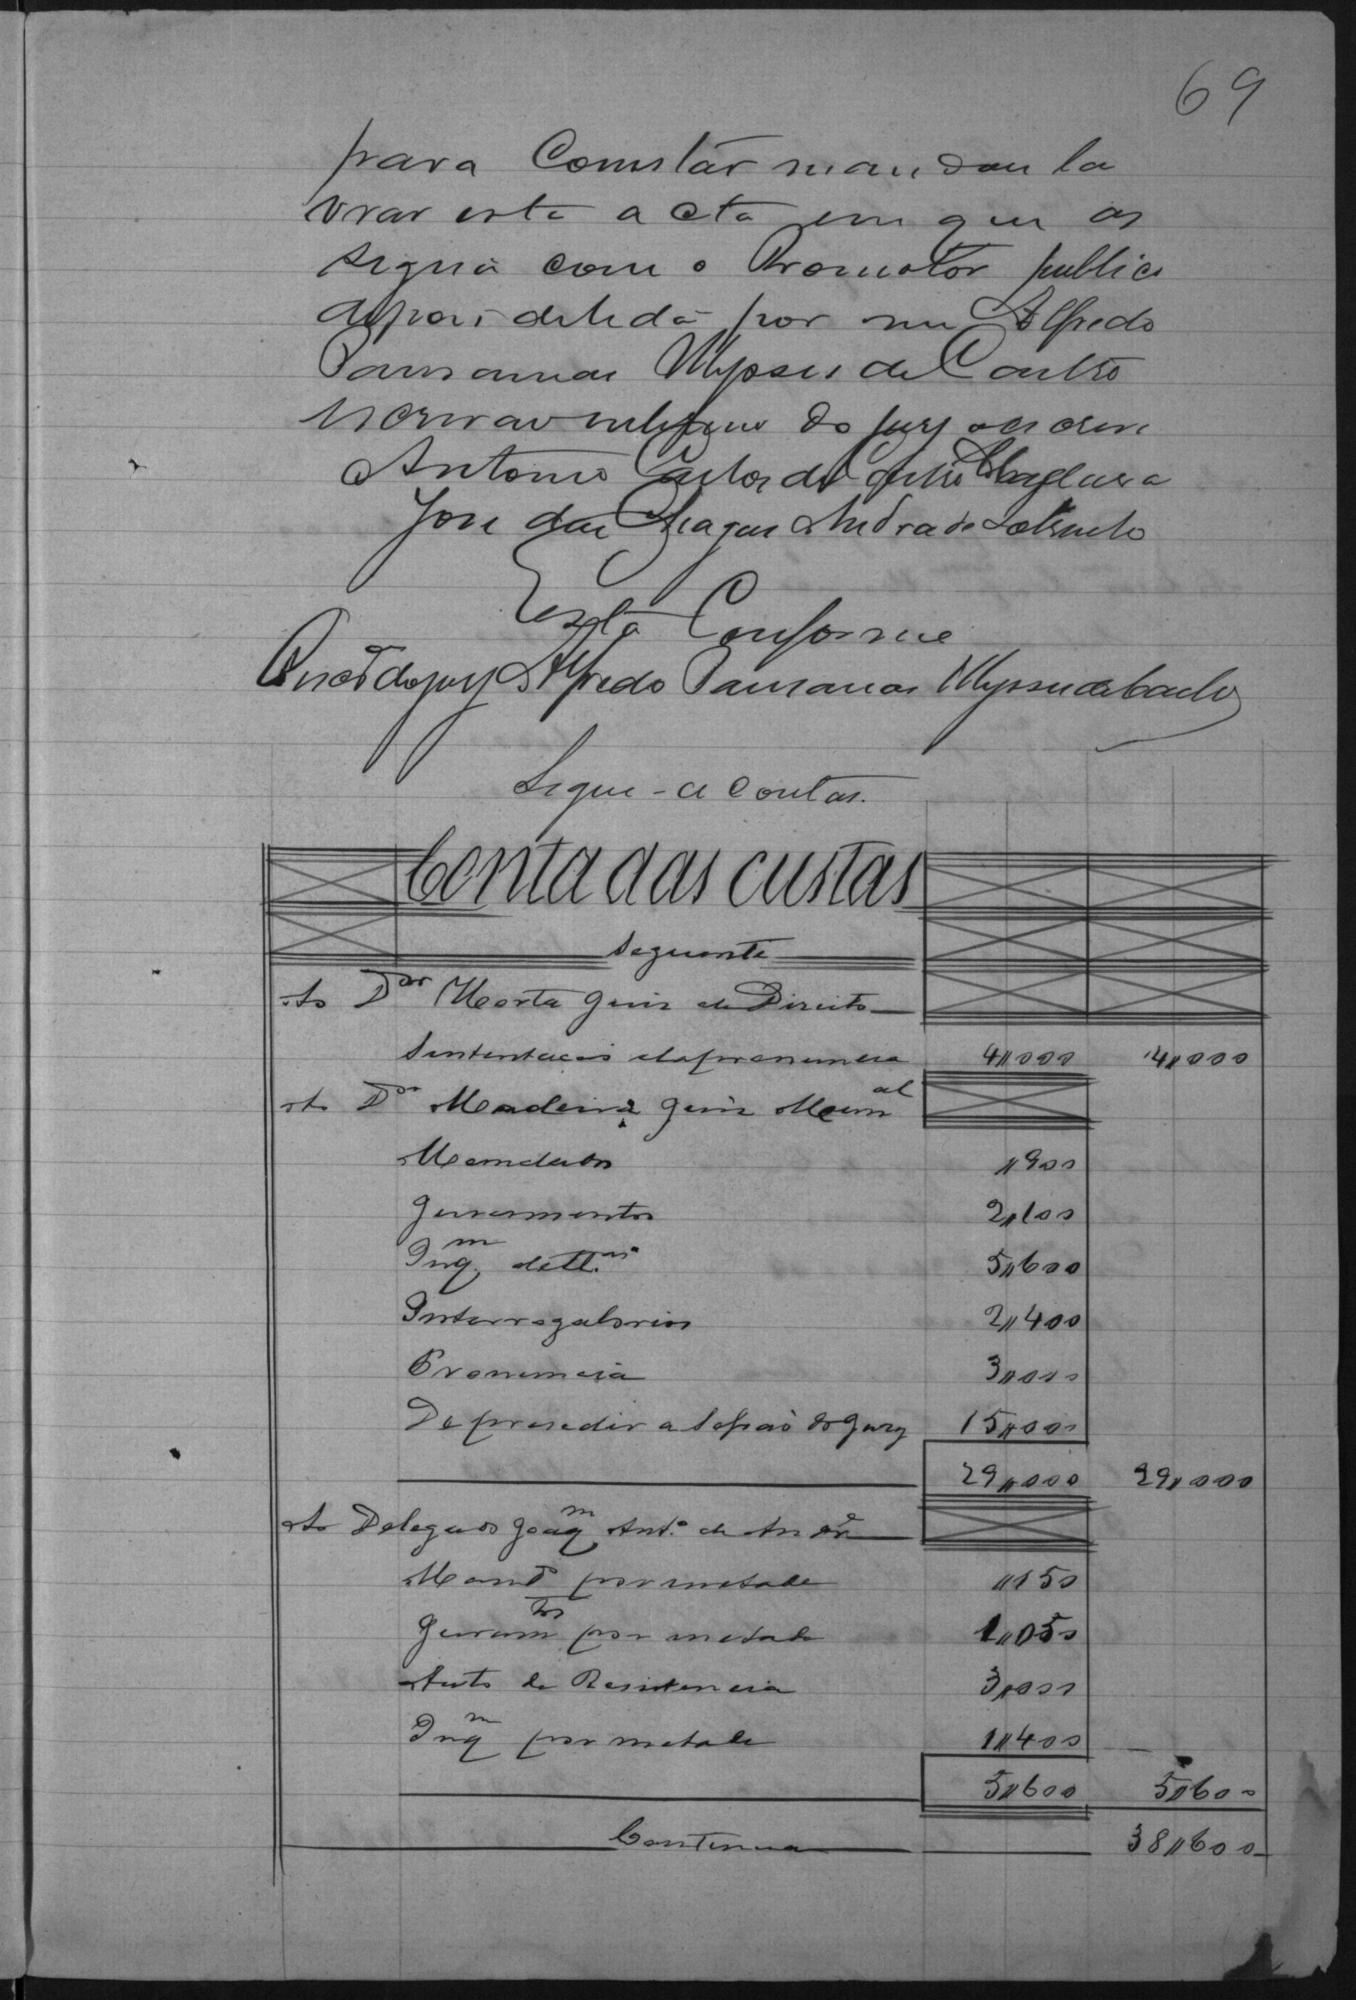 69
para Constár mandou la
vrar esta acta em que as
signa com o Promotor publico
depois de lida por mim Alfredo
Pausanias Ulysses de Castro
escrivão interino do jury o escrevi
Antonio Carlos de Castro Madeira
José das Chagas Andrade Sobrinho
Está Conforme
Escrᵐ do jury Alfredo Pausanias Ulysses de Castro
Segue-a contas.
Conta das custas
Seguinte
Ao Dᵒʳ Horta Juis de Direito
Sustentação da pronuncia 4,,000 4,,000
Ao Dᵒʳ Madeira Juis Munᵃˡ
Mandados ,,900
Juramentos 2,,100
Inqᵐ de ttᵃˢ 5,,600
Interrogatorios 2,,400
Pronuncia 3,,000
De presedir a Sessão do Jury 15,,000
29,,000 29,,000
Ao Delegado Joaqᵐ Antᵒ de Andrᵉ
Mandᵒ por metade ,,150
Juramᵗᵒˢ por metade 1,,050
Auto de Resistencia 3,,000
Inqᵐ por metade 1,,400
5,,600 5,,600
Continua 38,,600